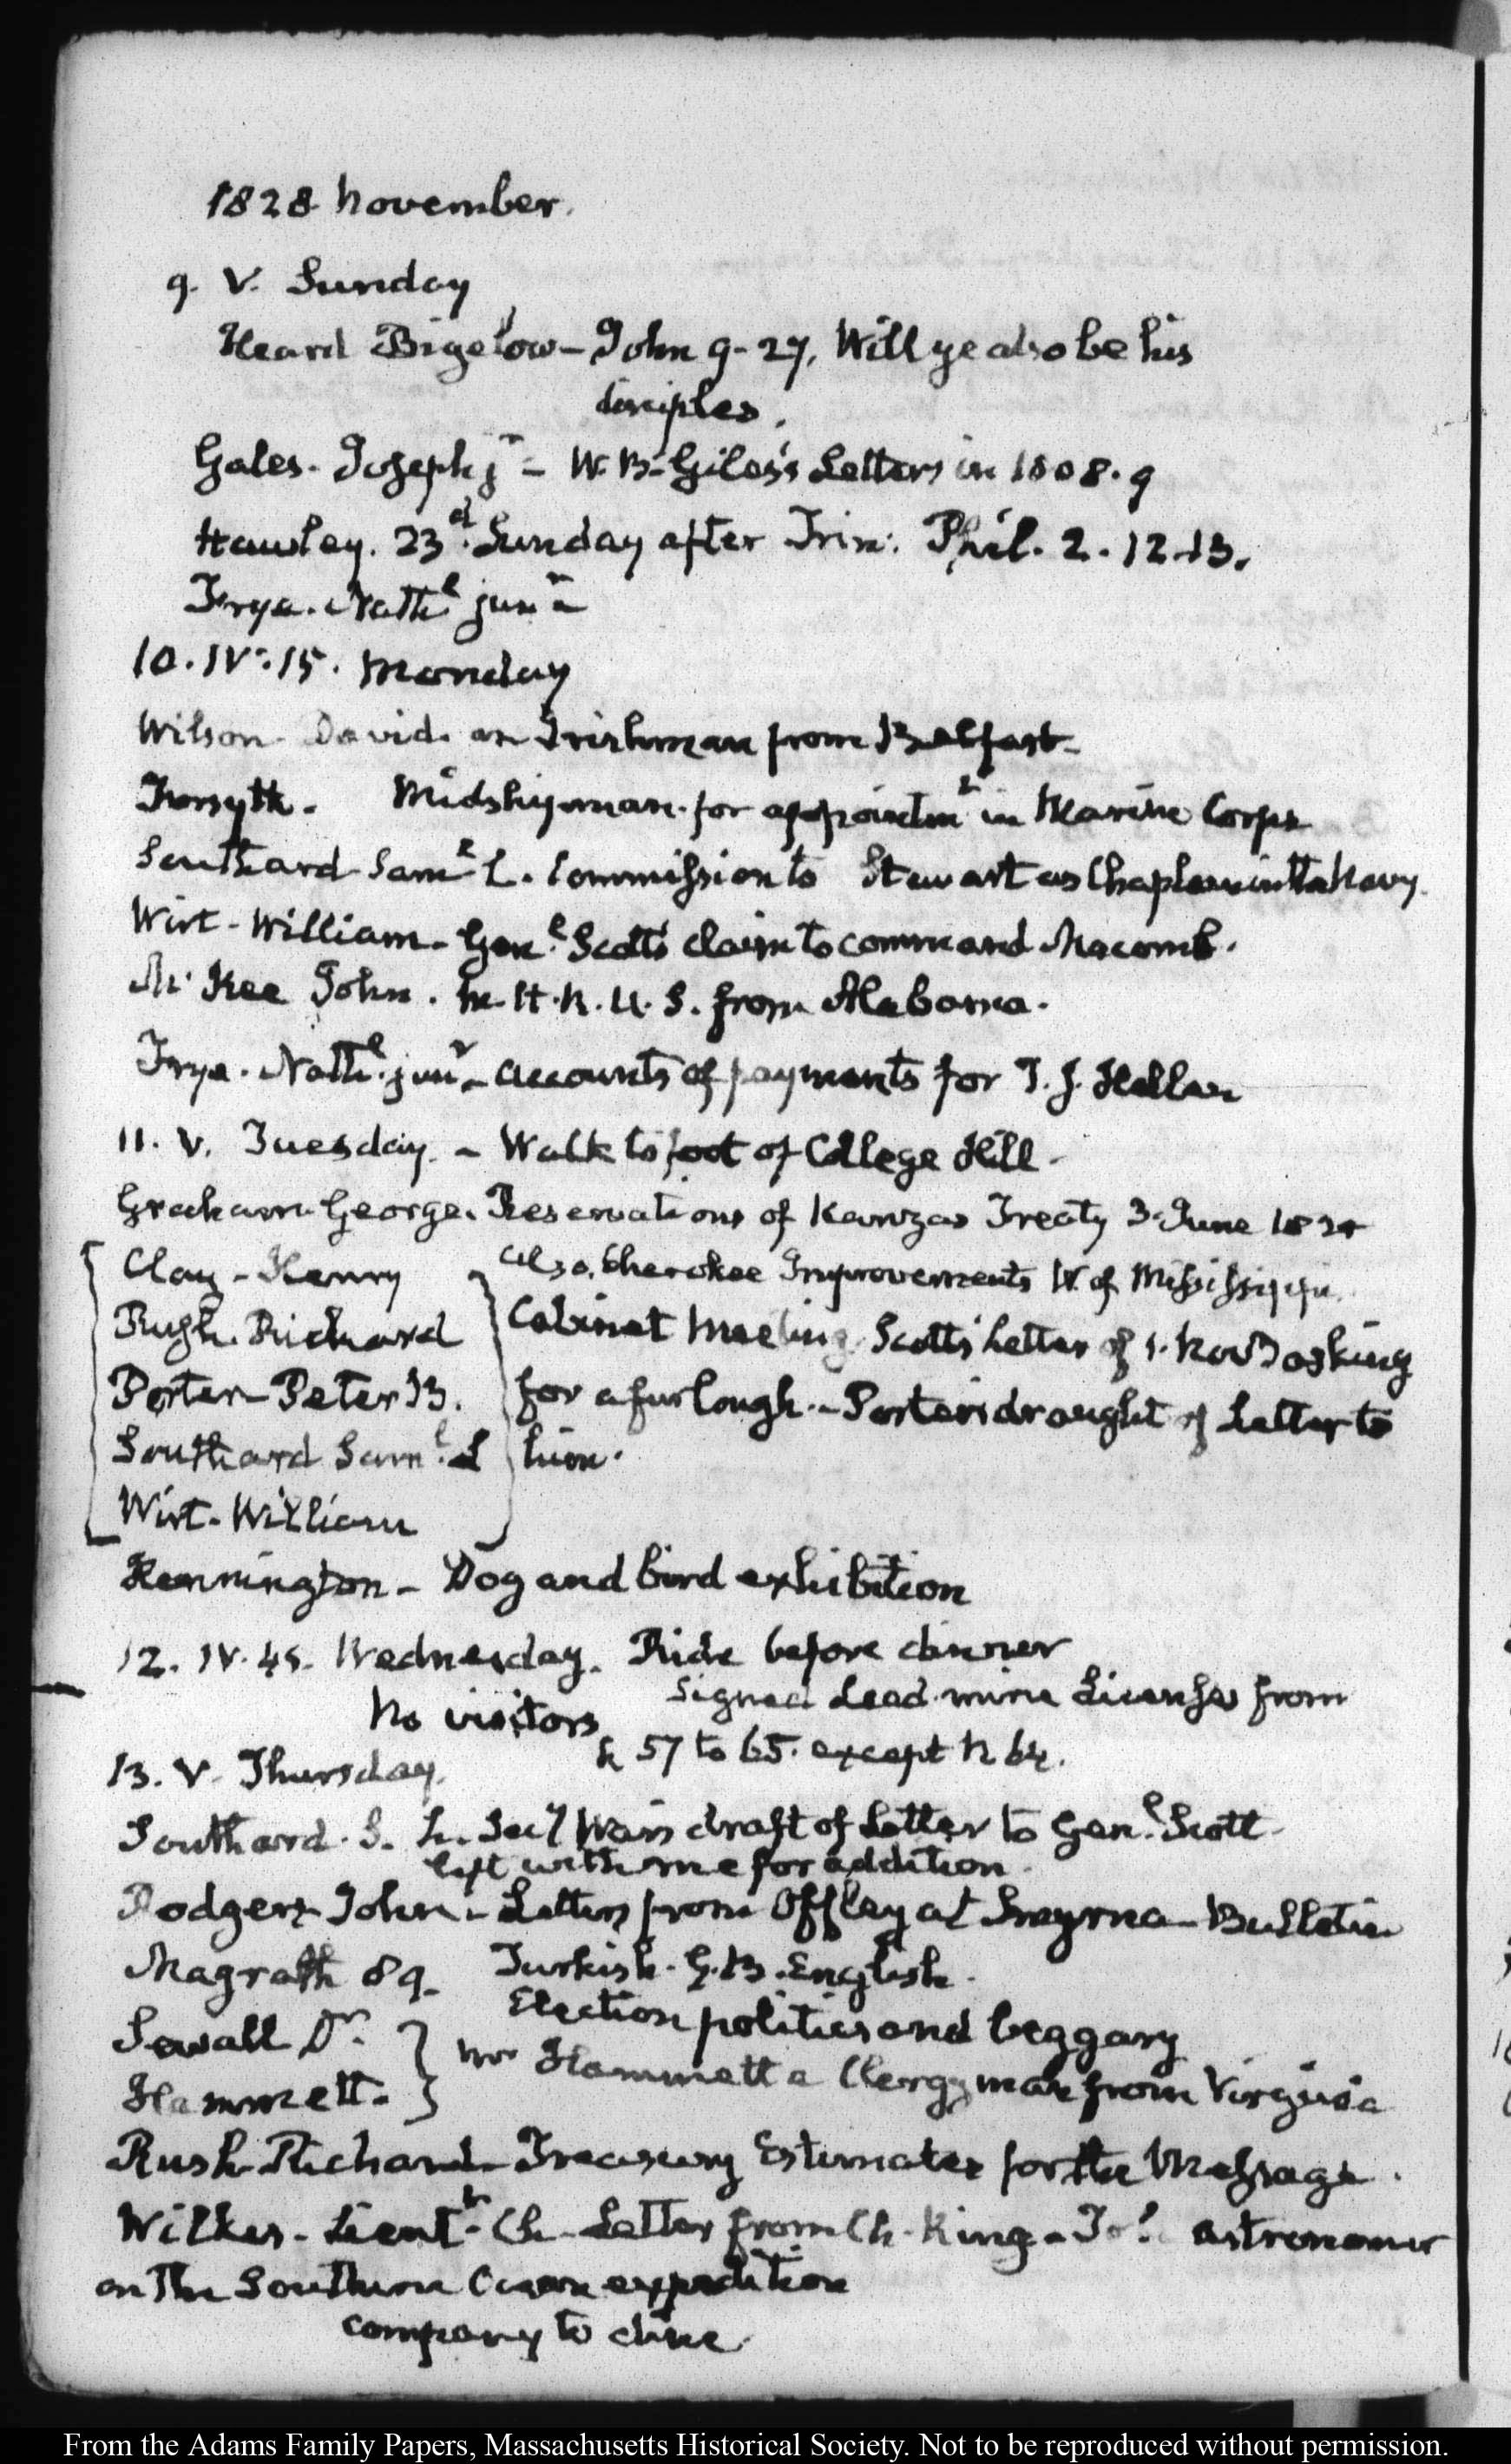 1828 November.
9. V. Sunday
Heard Bigelow – John 9-27, Will ye also be his
disciples.
Gales. Joseph jr – W. B. Giles's Letters in 1808.9
Hawley. 23d. Sunday after Trin: Phil. 2. 12-13.
Frye. Nathl junr
10. IV:15. Monday
Wilson David. an Irishman from Belfast –
Forsyth. Midshipman. for appointmt in Marine Corps
Southard Saml L. Commission to Stewart as Chaplain in the Navy.
Wirt – William – Genl Scott's claim to command Macomb.
McKee John. M.H.R.U.S. from Alabama.
Frye. Nathl. junr – accounts of payments for T. J. Hellen
11. V. Tuesday. – Walk to foot of College Hill –
Graham George. Reservations of Kanzas Treaty 3 June 1825
also. Cherokee Improvements W. of Mississippi.
Clay – Henry
Rush. Richard
Porter – Peter B.
Southard Saml. L
Wirt – William
Cabinet Meeting. Scott's Letter of 1. Novr asking
for a furlough. – Porter's draught of Letter to
him.
Kennington – Dog and bird exhibition
12. IV.45. Wednesday. Ride before dinner
No visitors
Signed Lead mine Licenses from
N 57 to 65. except N 64.
13. V. Thursday.
Southard. S. L. Secy War's draft of Letter to Genl. Scott –
left with me for addition.
Rodgers John – Letters from Offley at Smyrna – Bulletin
Turkish. G. B. English.
Magrath 89.
Election politics and beggary
Sewall Dr.
Hammett.
Mr Hammett a Clergyman from Virginia
Rush Richard – Treasury Estimates for the Message.
Wilkes – Lieutt Ch – Letter from Ch. King – astronomer
on the Southern Ocean expedition
company to dine
From the Adams Family Papers, Massachusetts Historical Society. Not to be reproduced without permission.